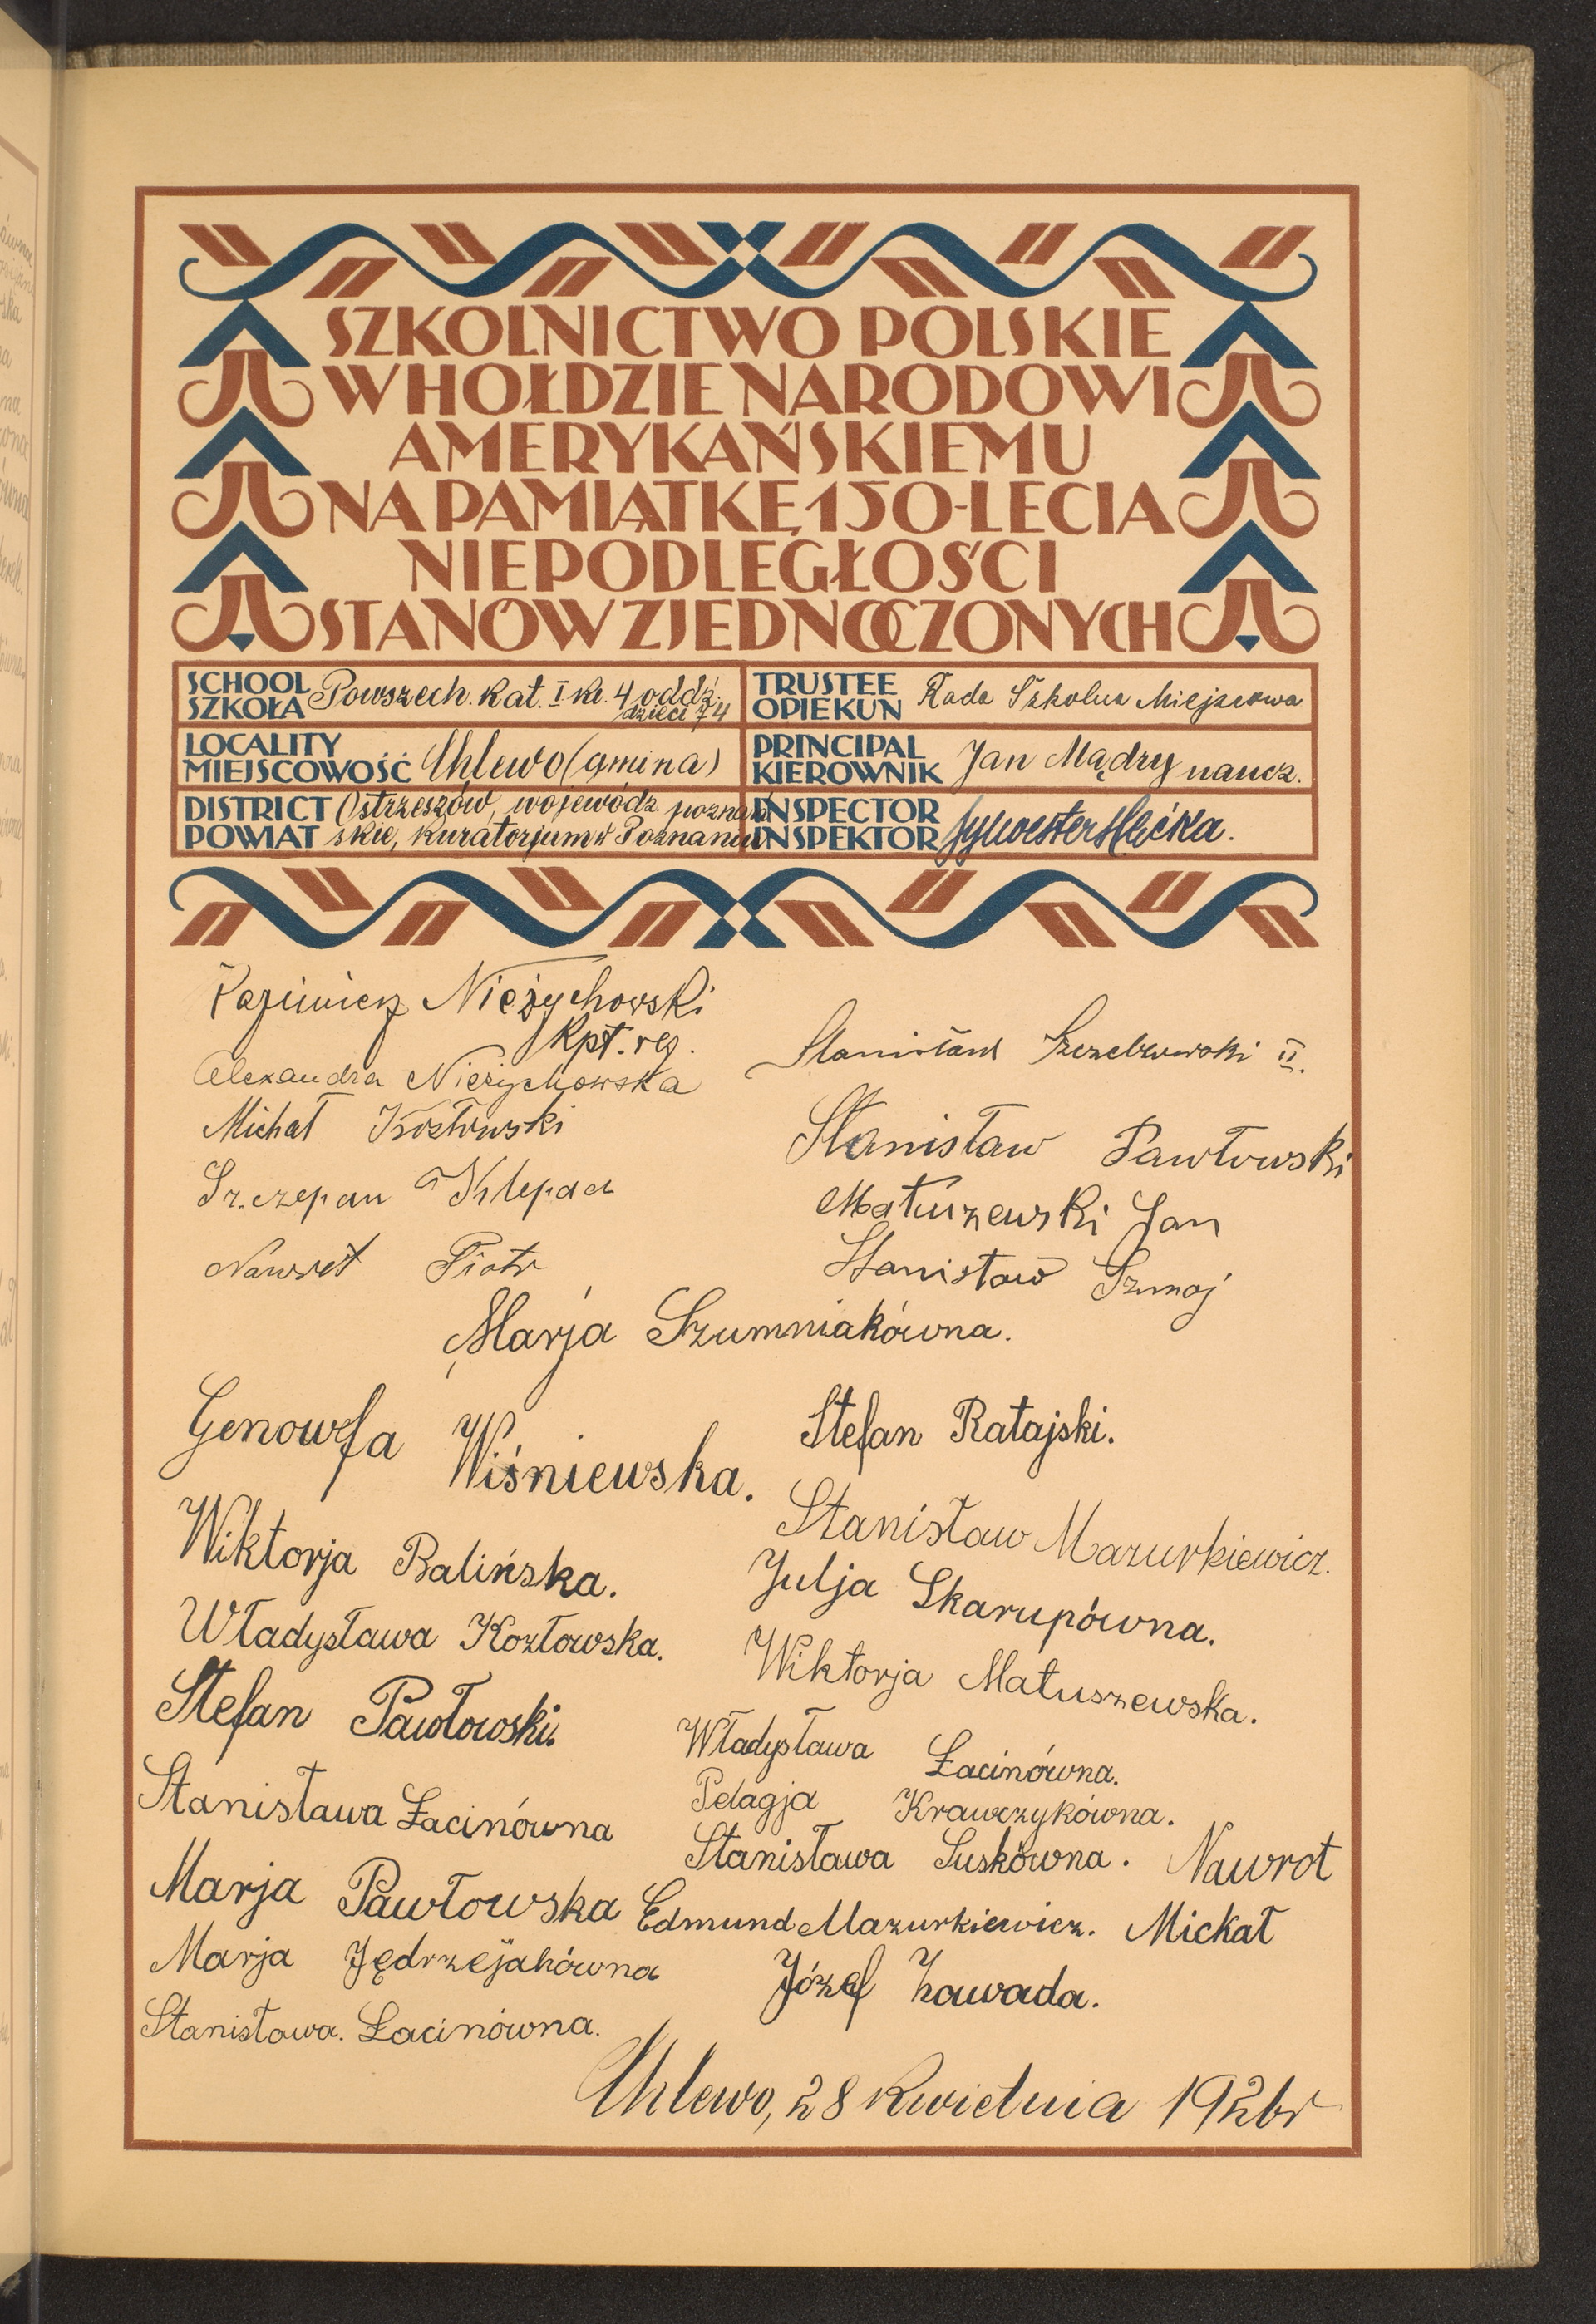 SZKOLNICTWO POLSKIE
W HOŁDZIE NARODOWI
AMERYKAŃSKIEMU
NA PAMIĄTKĘ 150-LECIA
NIEPODLEGŁOŚCI
STANÓW ZJEDNOCZONYCH
SCHOOL
SZKOŁA
Powszech. kat. I. kl. 4 oddz.
dzieci 74
TRUSTEE
OPIEKUN
Rada Szkolna Miejscowa
LOCALITY
MIEJSCOWOŚĆ
Chlewo (gmina)
PRINCIPAL
KIEROWNIK
Jan Mądry naucz.
DISTRICT
POWIAT
Ostrzeszów, wojewódz. poznań
skie, kuratorjum w Poznaniu
INSPECTOR
INSPEKTOR
Sylwester
Kazimierz Nieżychowski
Kpt. rez.
Alexandra Nieżychowska
Michał Kozłowski
Szczepan Klepacz
Nawrot Piotr
Stanisław II.
Stanisław Pawłowski
Matuszewski Jan
Stanisław Szmaj
Marja Szumniakówna.
Genowefa Wiśniewska.
Wiktorja Balińska.
Władysława Kozłowska.
Stefan Pawłowski.
Stanisława Łacinówna
Marja Pawłowska
Marja Jędrzejakówna
Stanisława. Łacinówna.
Stefan Ratajski.
Stanisław Mazurkiewicz.
Julja Skarupówna.
Wiktorja Matuszewska.
Władysława Łacinówna.
Pelagja Krawczykówna.
Stanisława Suskówna.
Nawrot
Edmund Mazurkiewicz.
Michał
Józef Zawada.
Chlewo, 28 kwietnia 1926 r